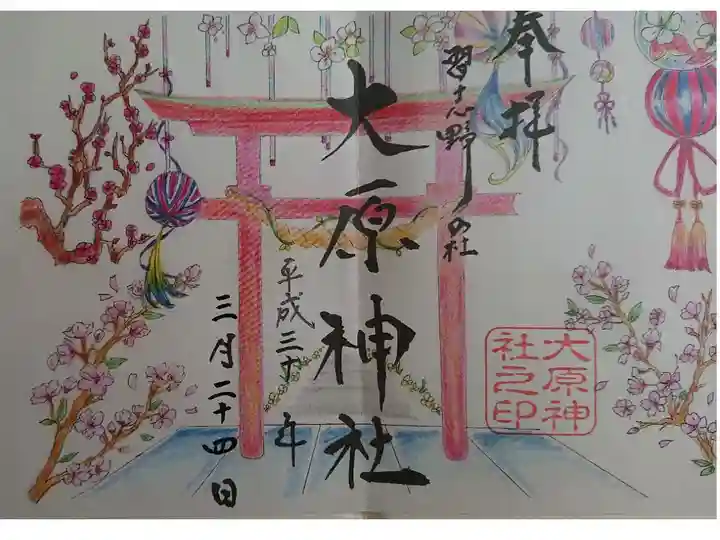 奉拝
習志野の社
大原神社
平成三十年
三月二十四日
大原神
社之印